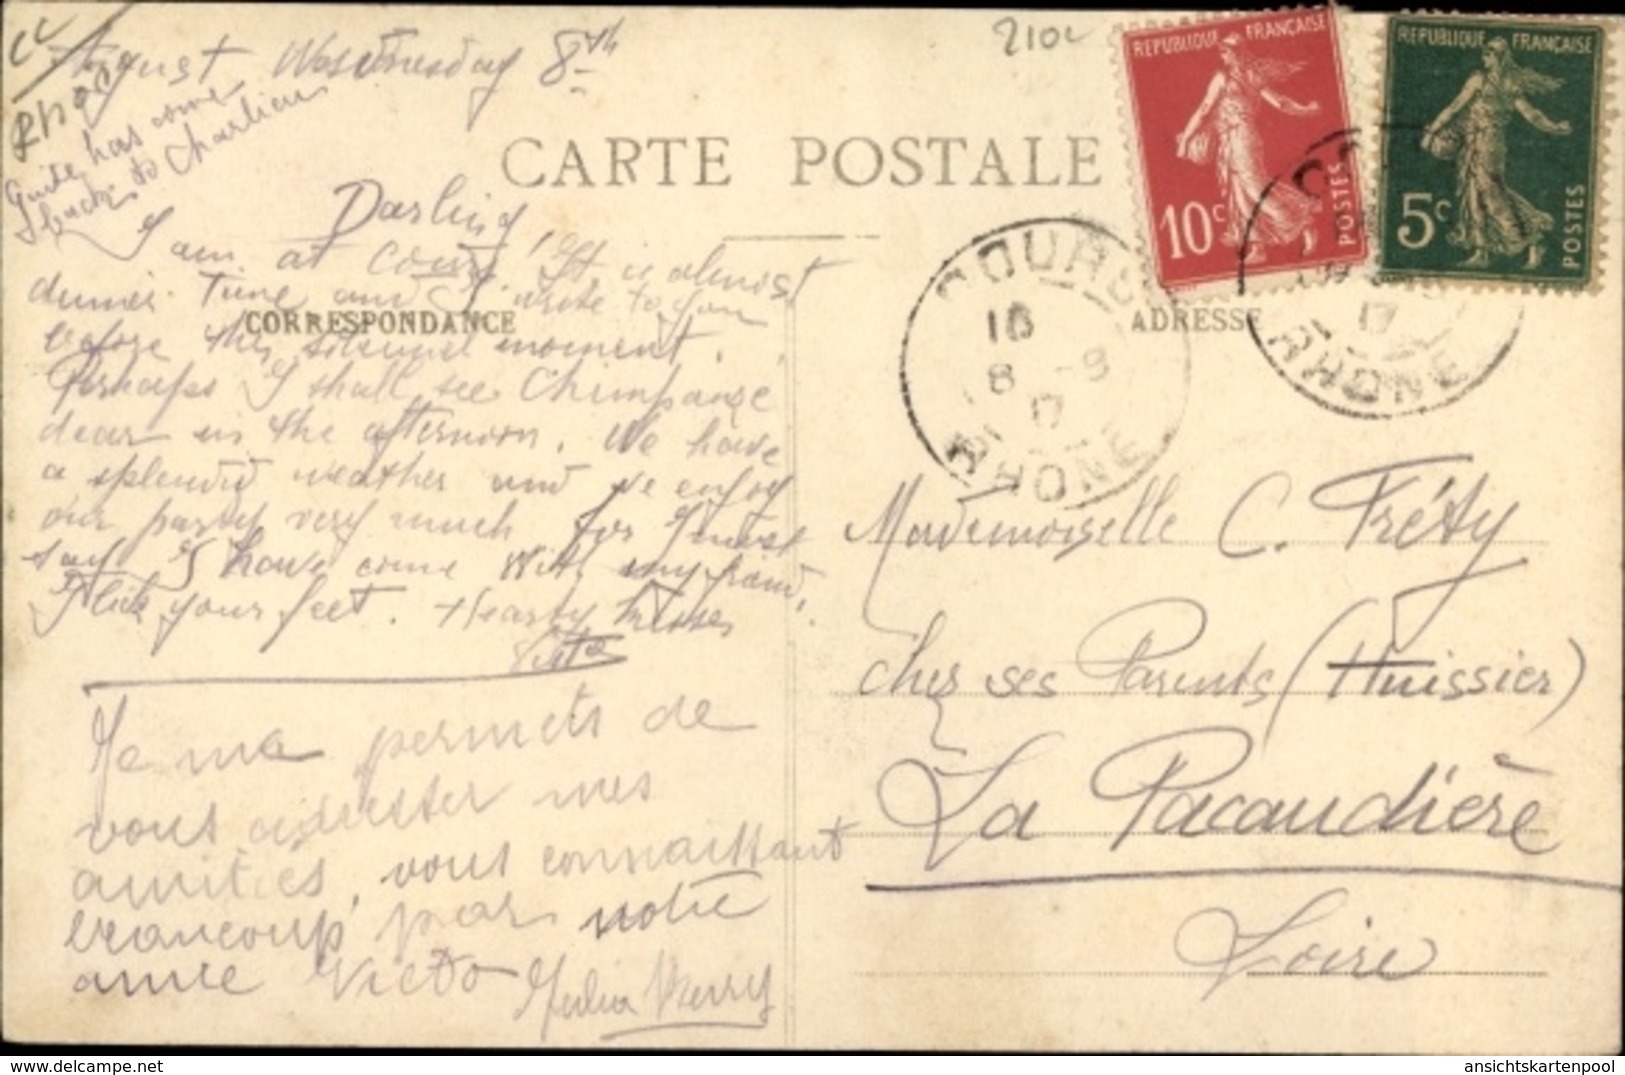 August Wednesday 8th
Guite has come
back to Charlieu
210c
REPUBLIQUE FRANÇAISE
10c
POSTES
REPUBLIQUE FRANÇAISE
5c
POSTES
CARTE POSTALE
Darling,
I am at Cours. It is almost
dinner Time and I write to you
CORRESPONDANCE
before this solemnel moment.
Perhaps I shall see Chimpanzé
dear in the afternoon. We have
a splendid weather and we enjoy
our party very much for I must
say I have come with my friend.
I lick your feet. Hearty kisses
Victo
Je me permets de
vous adresser mes
amitiés, vous connaissant
beaucoup par notre
amie Victo
COURS
16
8 - 8
17
RHONE
ADRESSE
17
RHONE
Mademoiselle C. Fréty
chez ses Parents (Huissier)
La Pacaudière
Loire
ansichtskartenpool